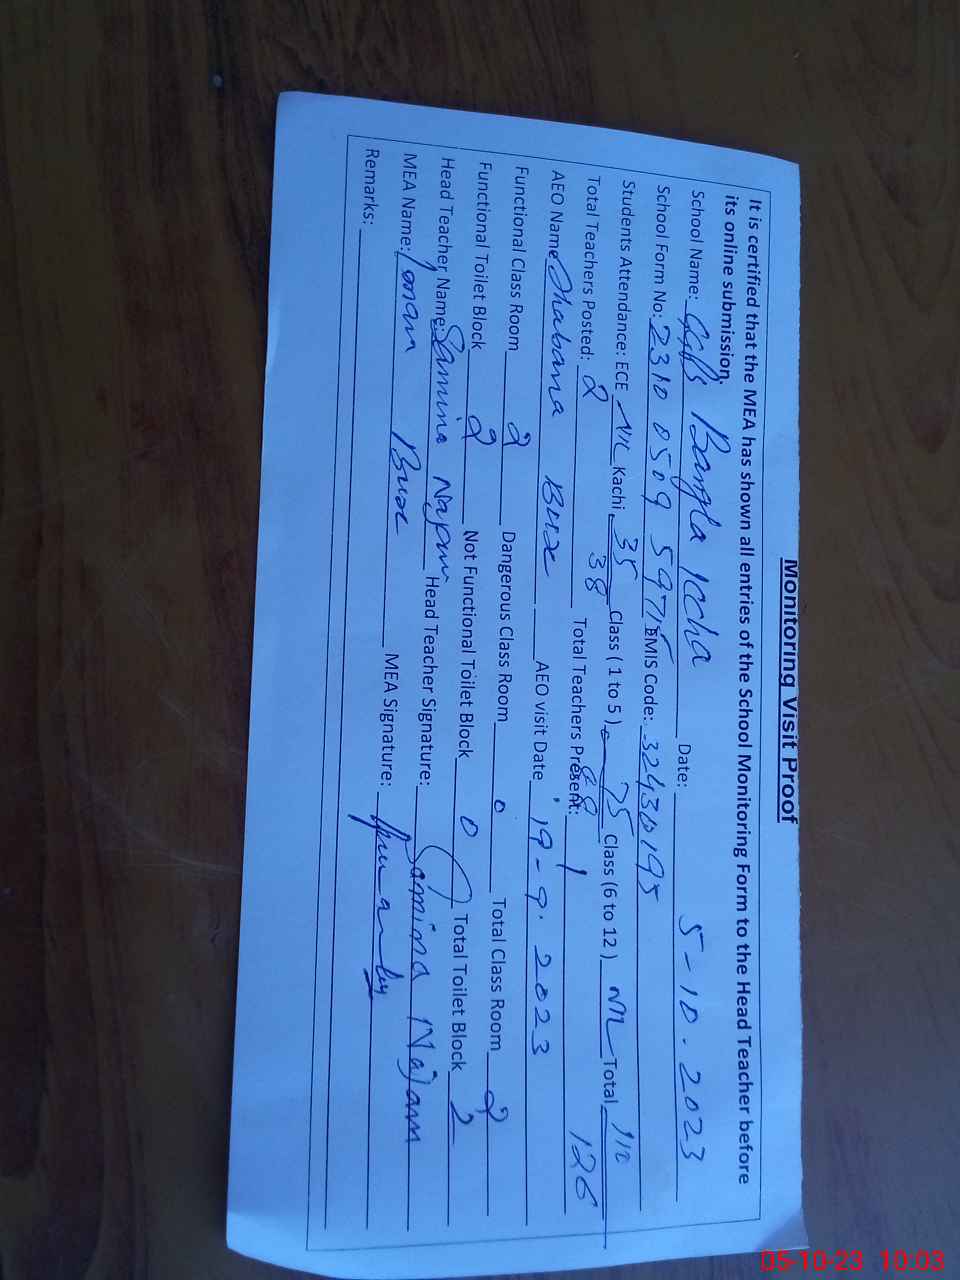 Monitoring Visit Proof
It is certified that the MEA has shown all entries of the School Monitoring Form to the Head Teacher before
its online submission.
School Name: Bangla Iccha Date: 5-10.2023
School Form No: 2310 0509 EMIS Code: 32430195
Students Attendance: ECE Nil Kachi 35 Class ( 1 to 5 ) 75 Class (6 to 12 ) Nil Total 110
38 88 126
Total Teachers Posted: 2 Total Teachers Present: 1
AEO Name Shabana Bux AEO visit Date 19-9.2023
Functional Class Room 2 Dangerous Class Room 0 Total Class Room 2
Functional Toilet Block 2 Not Functional Toilet Block 0 Total Toilet Block 2
Head Teacher Name: Samina Najam Head Teacher Signature: Samina Najam
MEA Name: Bux MEA Signature:
Remarks:
05-10-23 10:03